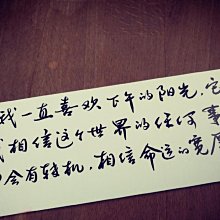 我一直喜欢下午的阳光,它
我相信这个世界的任何事
会有转机,相信命运的宽厚